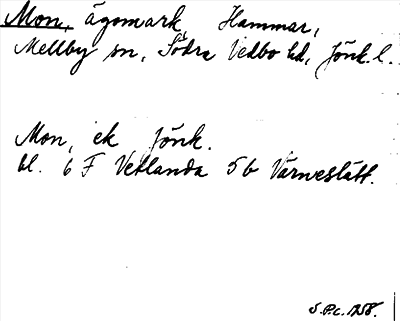 Mon, ägomark Hammar,
Mellby sn, Södra Vedbo hd, Jönk. l.
Mon, ek Jönk.
bl. 6 F Vetlanda 5b Värneslätt.
S.P.C. 1958.